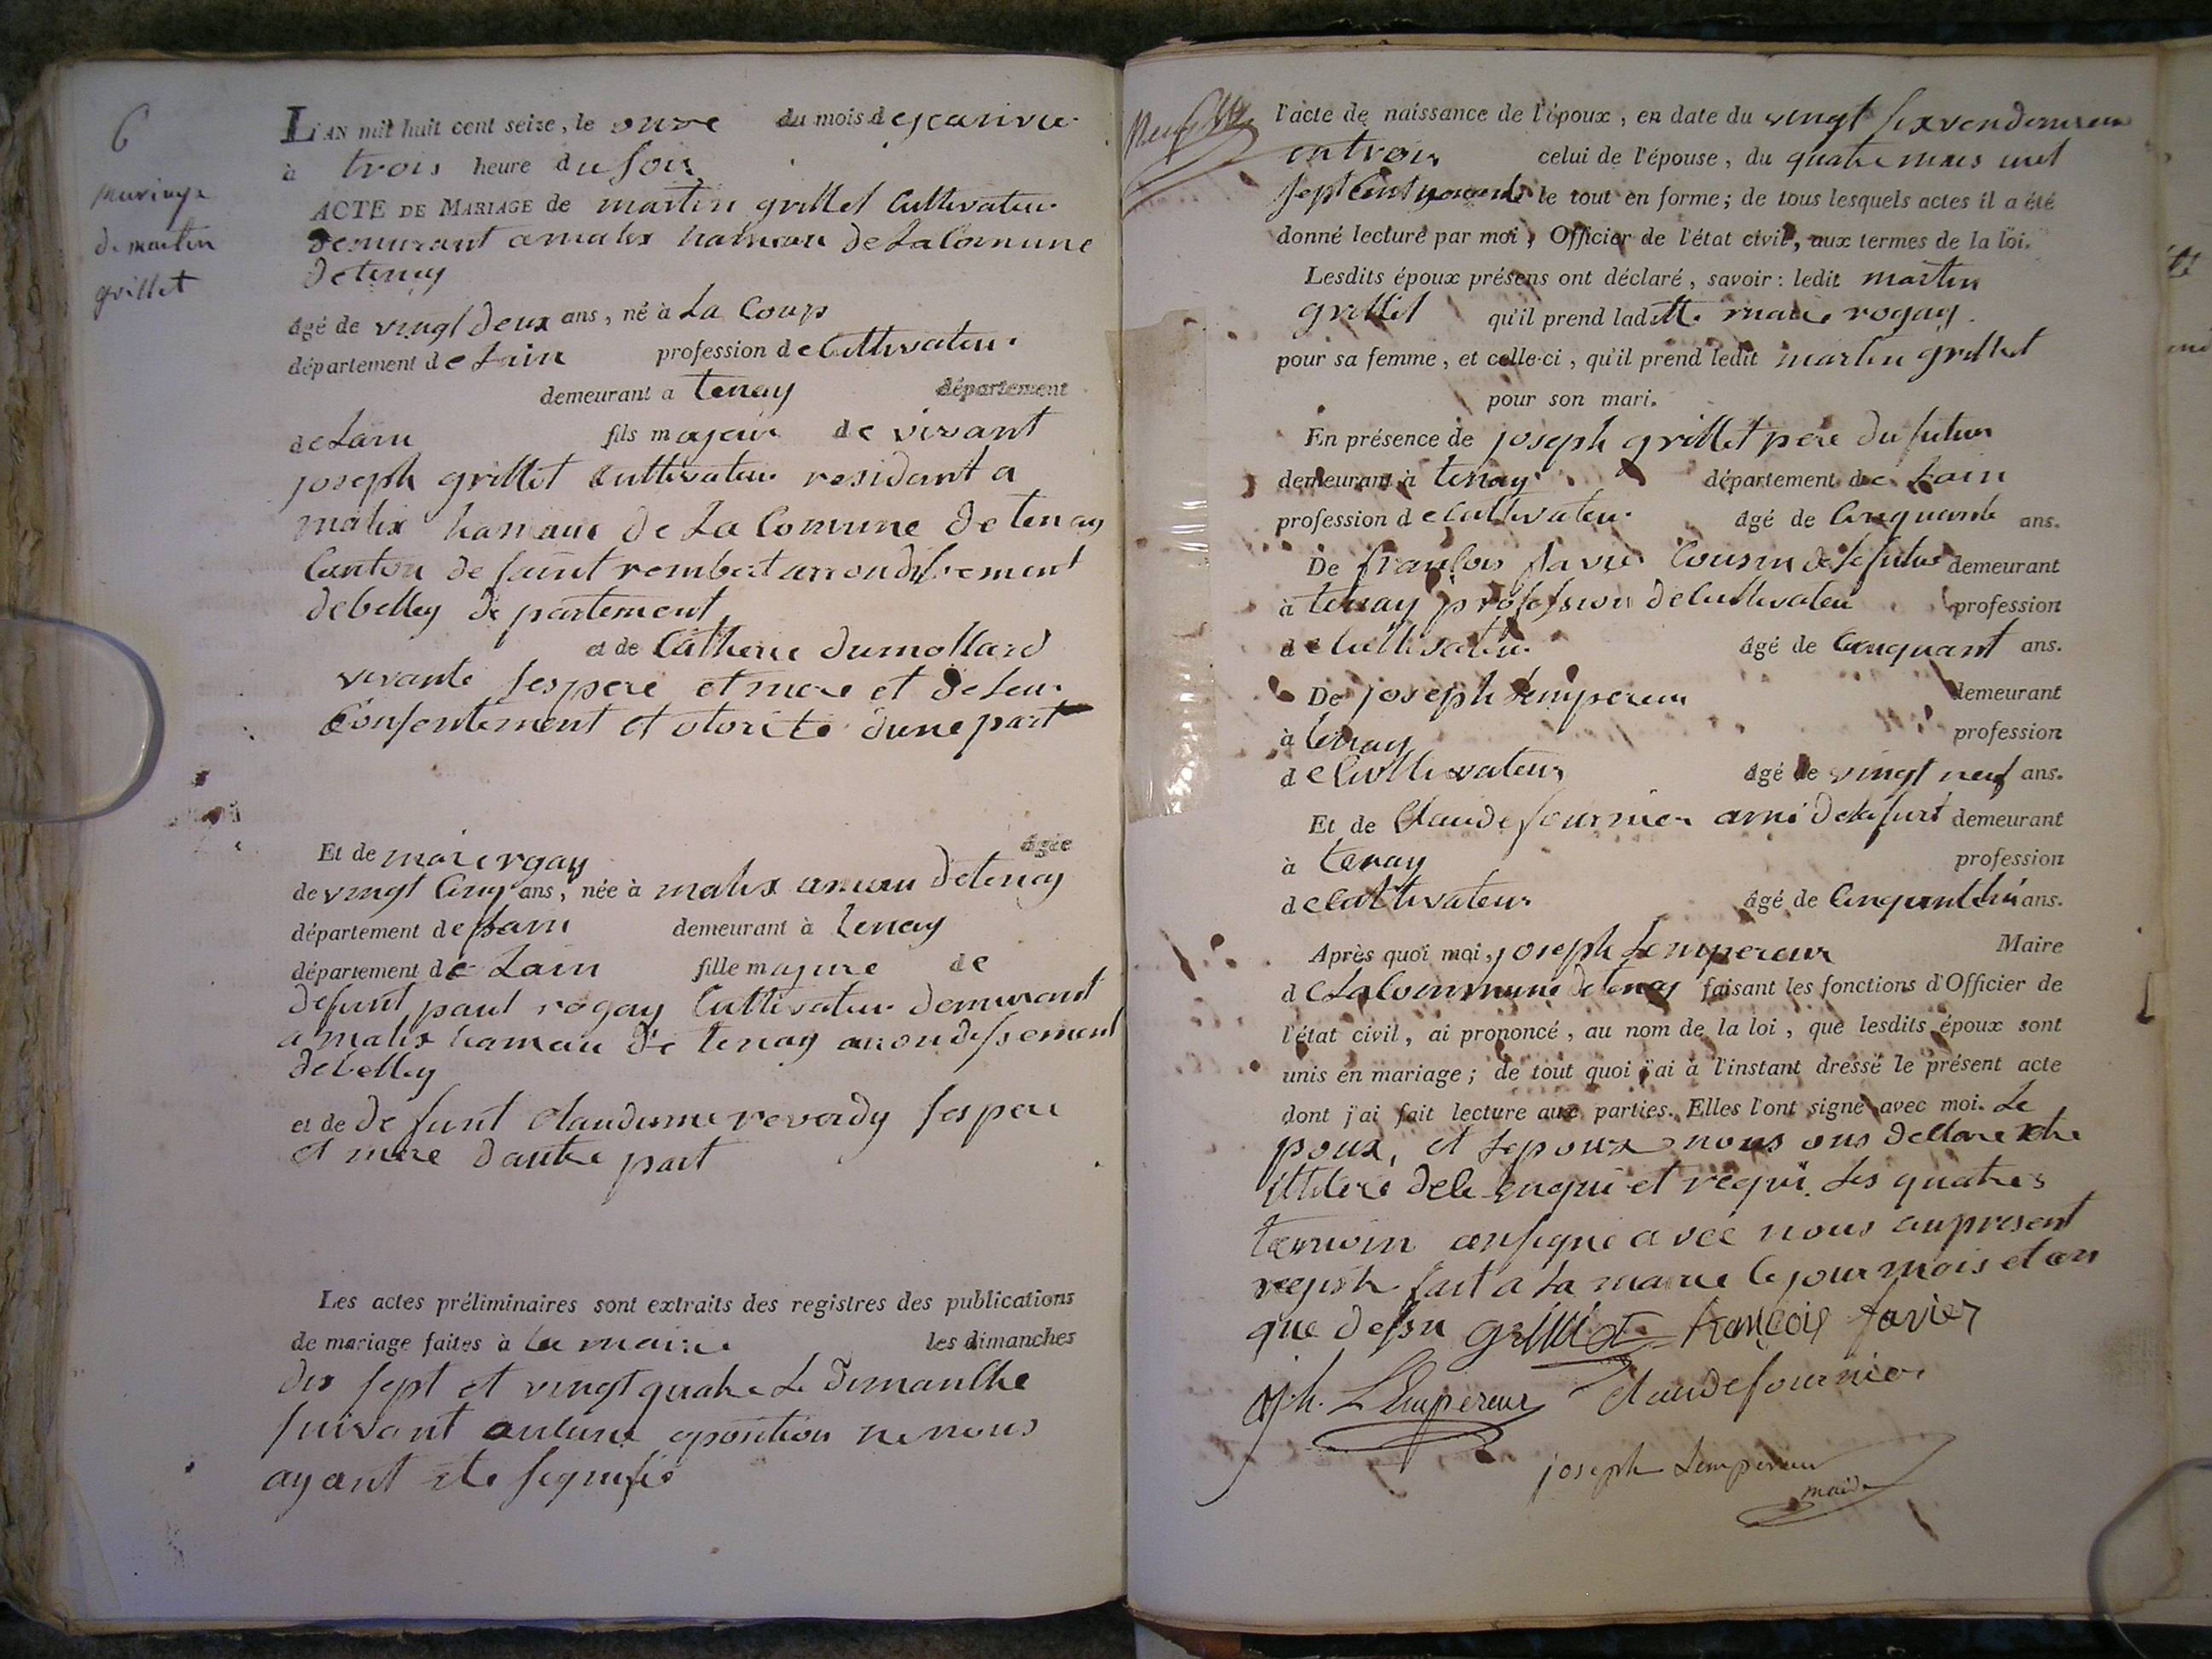 6
mariage
de martin
grillet
L'AN mil huit cent seize, le onze du mois de janvier
à trois heure du soir
ACTE DE MARIAGE de martin grillet Cultivateur
demurant a malix hameau de La Comune
de tenay
âgé de vingt deux ans, né à La Coup
département de Lain profession de Cultivateur
demeurant a tenay département
de Lain fils majeur de vivant
joseph grillet Cultivateur residant a
malix hamaux de La Comune de tenay
Canton de saint rembert arrondissement
de belley de partement
et de Catherie dumollard
vivante ses pere et mere et de leur
Consentement et otorite dune part
Et de marie rogay âgée
de vingt Cinq ans, née à malix amau de tenay
département de Lain demeurant à tenay
département de Lain fille majure de
defunt paul rogay Cultivateur demurant
a malix hamau de tenay arrondissement
de belley
et de de funt Claudinne reverdy ses pere
et mere dautre part
Les actes préliminaires sont extraits des registres des publications
de mariage faites à la mairie les dimanches
dix sept et vingt quatre Le dimanche
suivant aucune oposition ne nous
ayant ete signifie
l'acte de naissance de l'époux, en date du vingt six vendemiere
en trois celui de l'épouse, du quatre mars mil
sept Cent nonante le tout en forme; de tous lesquels actes il a été
donné lecture par moi, Officier de l'état civil, aux termes de la loi.
Lesdits époux présens ont déclaré, savoir: ledit martin
grillet qu'il prend laditte marie rogay
pour sa femme, et celle-ci, qu'il prend ledit martin grillet
pour son mari.
En présence de joseph grillet pere du futur
demeurant à tenay département de Lain
profession de Cultivateur âgé de Cinquante ans.
De françois favier Cousin de futur demeurant
à tenay profession de Cultivateur profession
de Cultivateur âgé de Cinquant ans.
De joseph Lempereur demeurant
à tenay profession
de Cultivateur âgé de vingt neuf ans.
Et de Claude fournier ami demeurant
à tenay profession
de Cultivateur âgé de ans.
Après quoi moi, joseph Lempereur Maire
de La Commune de tenay faisant les fonctions d'Officier de
l'état civil, ai prononcé, au nom de la loi, que lesdits époux sont
unis en mariage; de tout quoi j'ai à l'instant dressé le présent acte
dont j'ai fait lecture aux parties. Elles l'ont signé avec moi. Le
poux, et Lepouxe nous ons declare
illitere de le enqui et requi. Les quatres
temoin on signe a vec nous au present
registre fait a La mairie le jour mois et an
que dessu grillet françois favier
Jph. LEmpereur Claude fournier
joseph Lempereur
maire